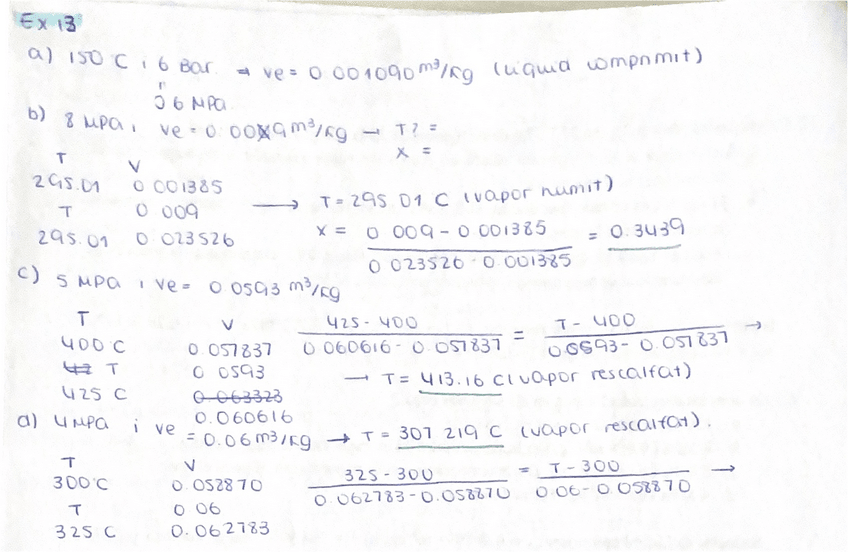 Ex 13
a) 150°C i 6 Bar → ve = 0.001090 m³/kg (liquid comprimit)
"
0.6 MPa
b) 8 MPa i ve = 0.009 m³/kg → T? =
x =
T V
295.01 0.001385 → T = 295.01 C (vapor humit)
T 0.009 x = 0.009 - 0.001385 / 0.023526 - 0.001385 = 0.3439
295.01 0.023526
c) 5 MPa i ve = 0.0593 m³/kg
T V 425 - 400 / 0.060616 - 0.057837 = T - 400 / 0.0593 - 0.057837 →
400°C 0.057837
T 0.0593 → T = 413.16 C (vapor rescalfat)
425 C 0.063323
0.060616
d) 4 MPa i ve = 0.06 m³/kg → T = 307.219 C (vapor rescalfat).
T V 325 - 300 / 0.062783 - 0.058870 = T - 300 / 0.06 - 0.058870 →
300°C 0.058870
T 0.06
325 C 0.062783